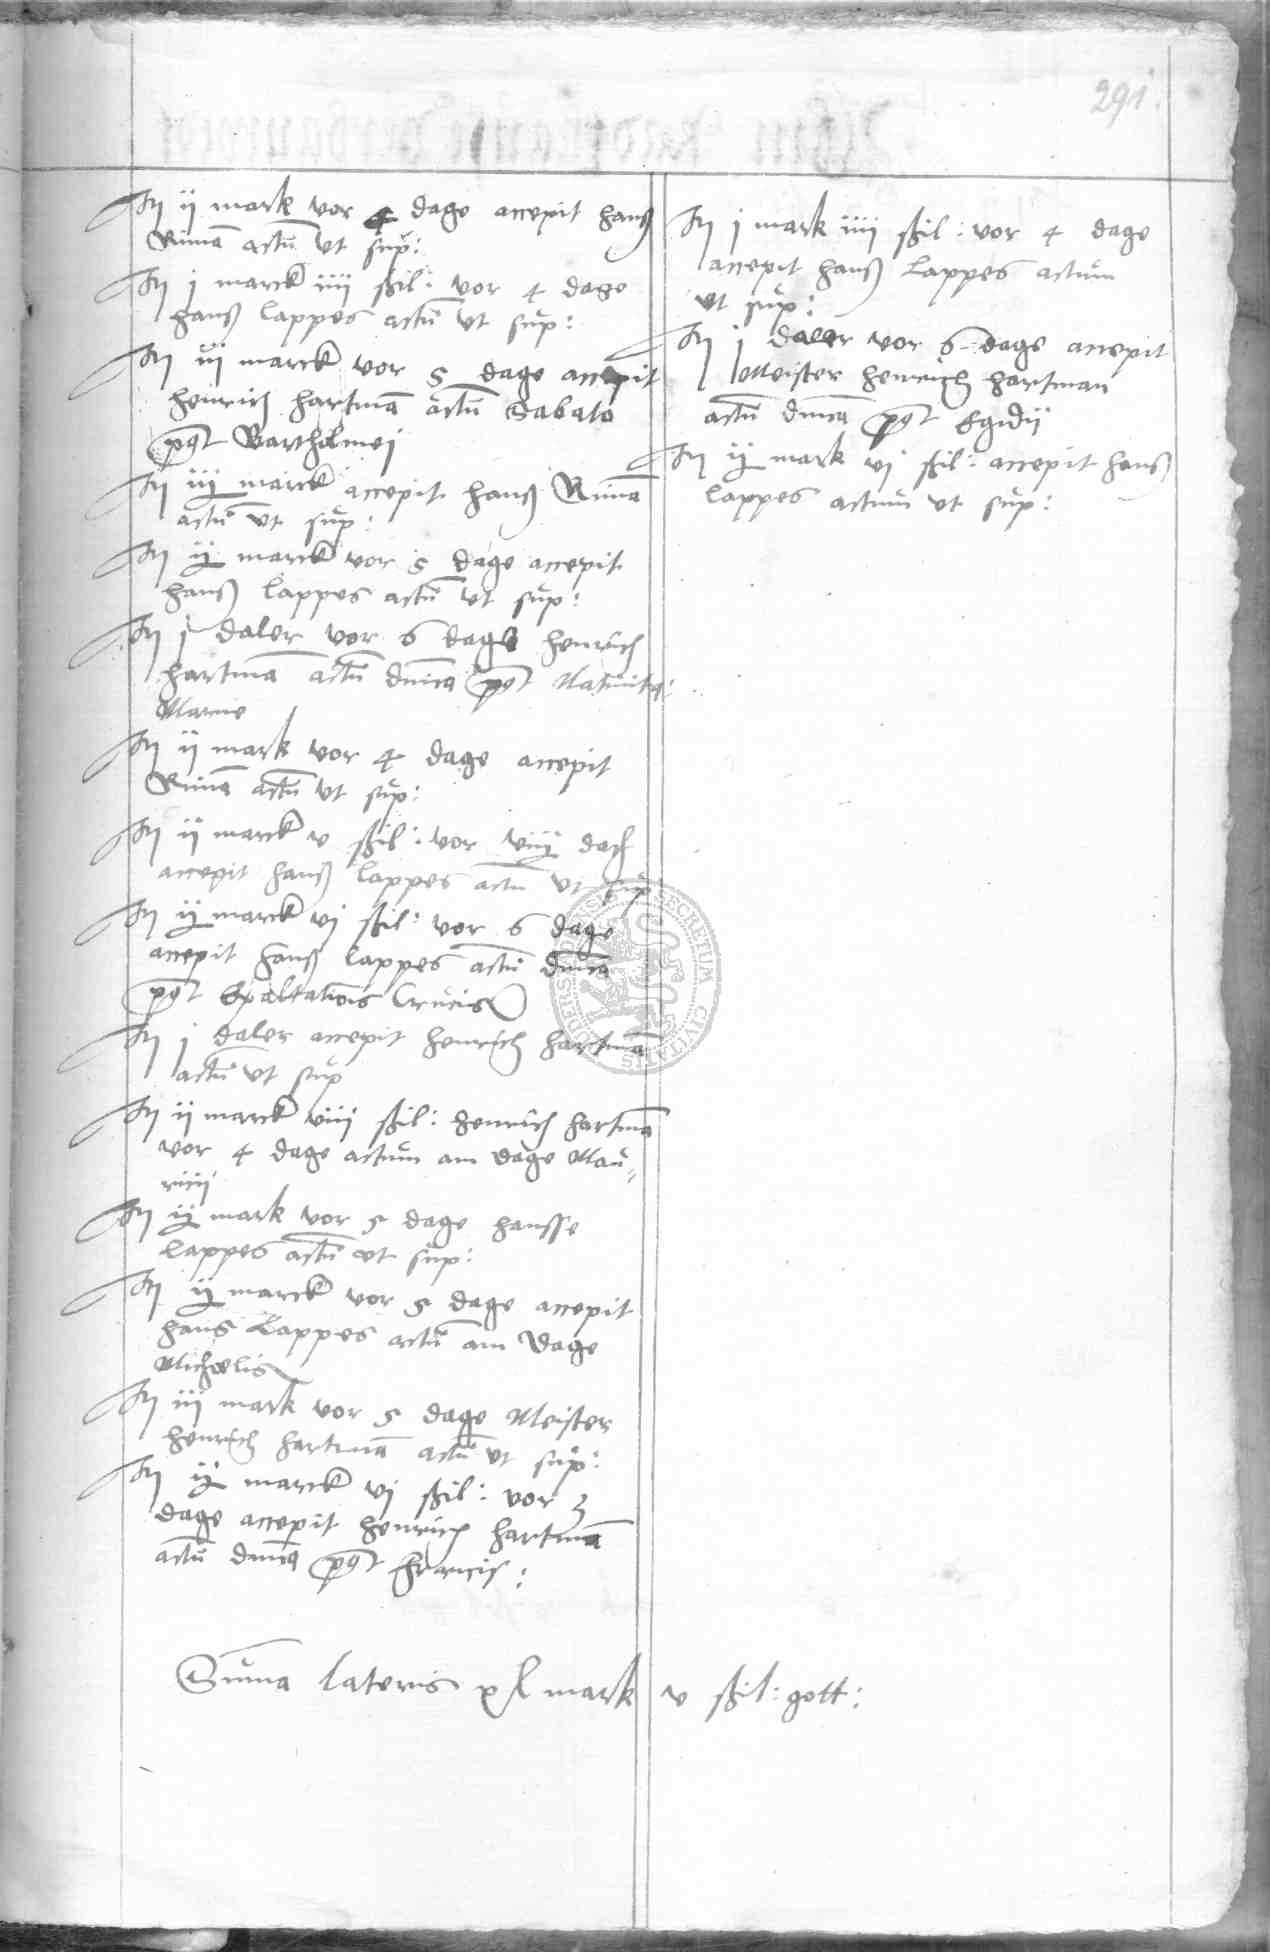 291
It ij mark vor 4 dage accepit hanß
Rimā actū ut sup:
It j marck iiij ßil: vor 4 dage
hanß Lappes actū ut sup:
It iij marck vor 5 dage accepit
henrich hartmā actū Sabato
post Bartholmej
It iij marck accepit hanß Rimā
actū ut sup:
It ij marck vor 5 dage accepit
hanß Lappes actū ut sup:
It j daler vor 6 dage henrich
hartmā actū dnica post Natiuita:
Marie
It ij mark vor 4 dage accepit
Rimā actū ut sup:
It ij marck v ßil: vor dach
accepit hanß Lappes actū ut sup
It ij marck vj ßil: vor 6 dage
accepit hanß Lappes actū dnica
post Exaltationis Crucis
It j daler accepit henrich hartmā
actū ut sup
It ij marck viij ßil: henrich hartmā
vor 4 dage actum am dage Mau„
ricij
It ij mark vor 5 dage hansse
Lappes actū ut sup:
It ij marck vor 5 dage accepit
hans Lappes actū am dage
Michaelis
It iij mark vor 5 dage Meister
henrich hartmā actū ut sup:
It ij marck vj ßil: vor 3
dage accepit henrich hartmā
actū dnica post Francis:
It j mark iiij ßil: vor 4 dage
accepit hanß Lappes actum
ut sup:
It j daler vor 6 dage accepit
Meister henrich hartman
actū dnica post Egidij
It ij mark vj ßil: accepit hanß
Lappes actum ut sup:
Suma lateris xl mark v ßil: gott:
SECRETUM CIVITATIS